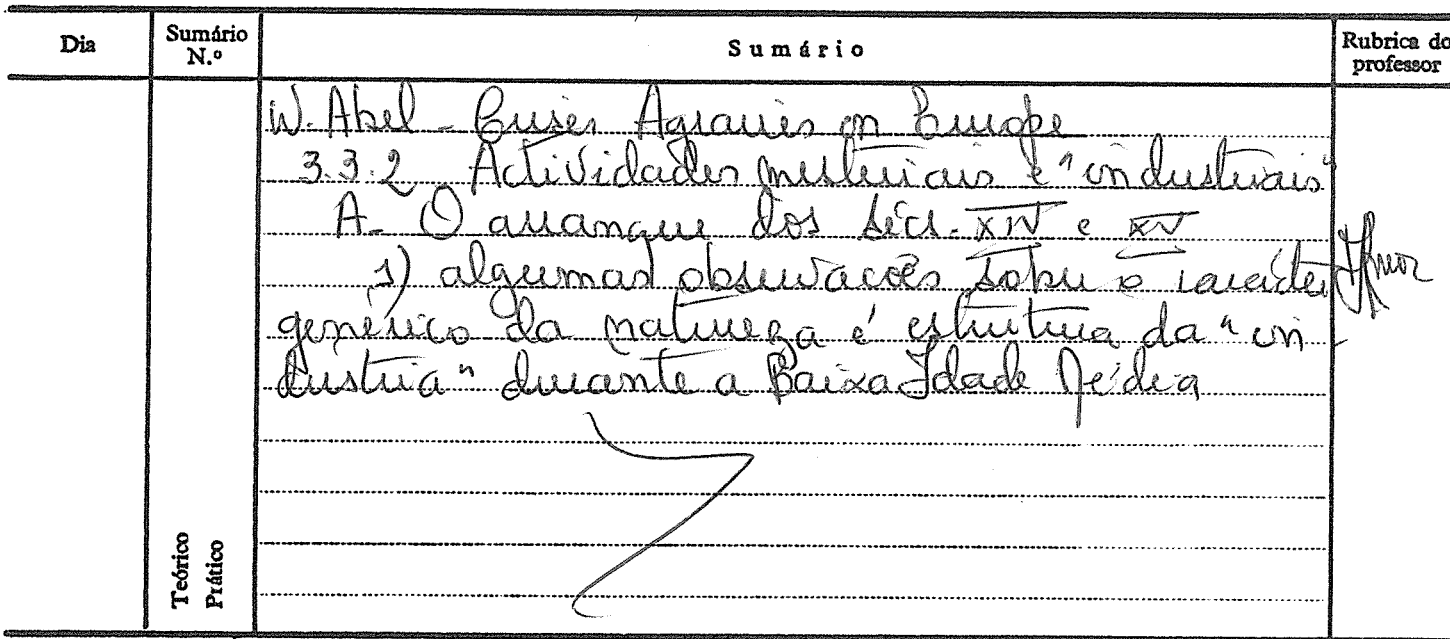 Dia Sumário N.º Sumário Rubrica do professor
W. Abel - Crises Agraires en Europe
3.3.2 Actividades mesteirais e "industriais"
A. O arranque dos sécs. XIV e XV
1) algumas observações sobre o carácter
genérico da natureza e estrutura da "in
dustria" durante a Baixa Idade Média
Teórico
Prático